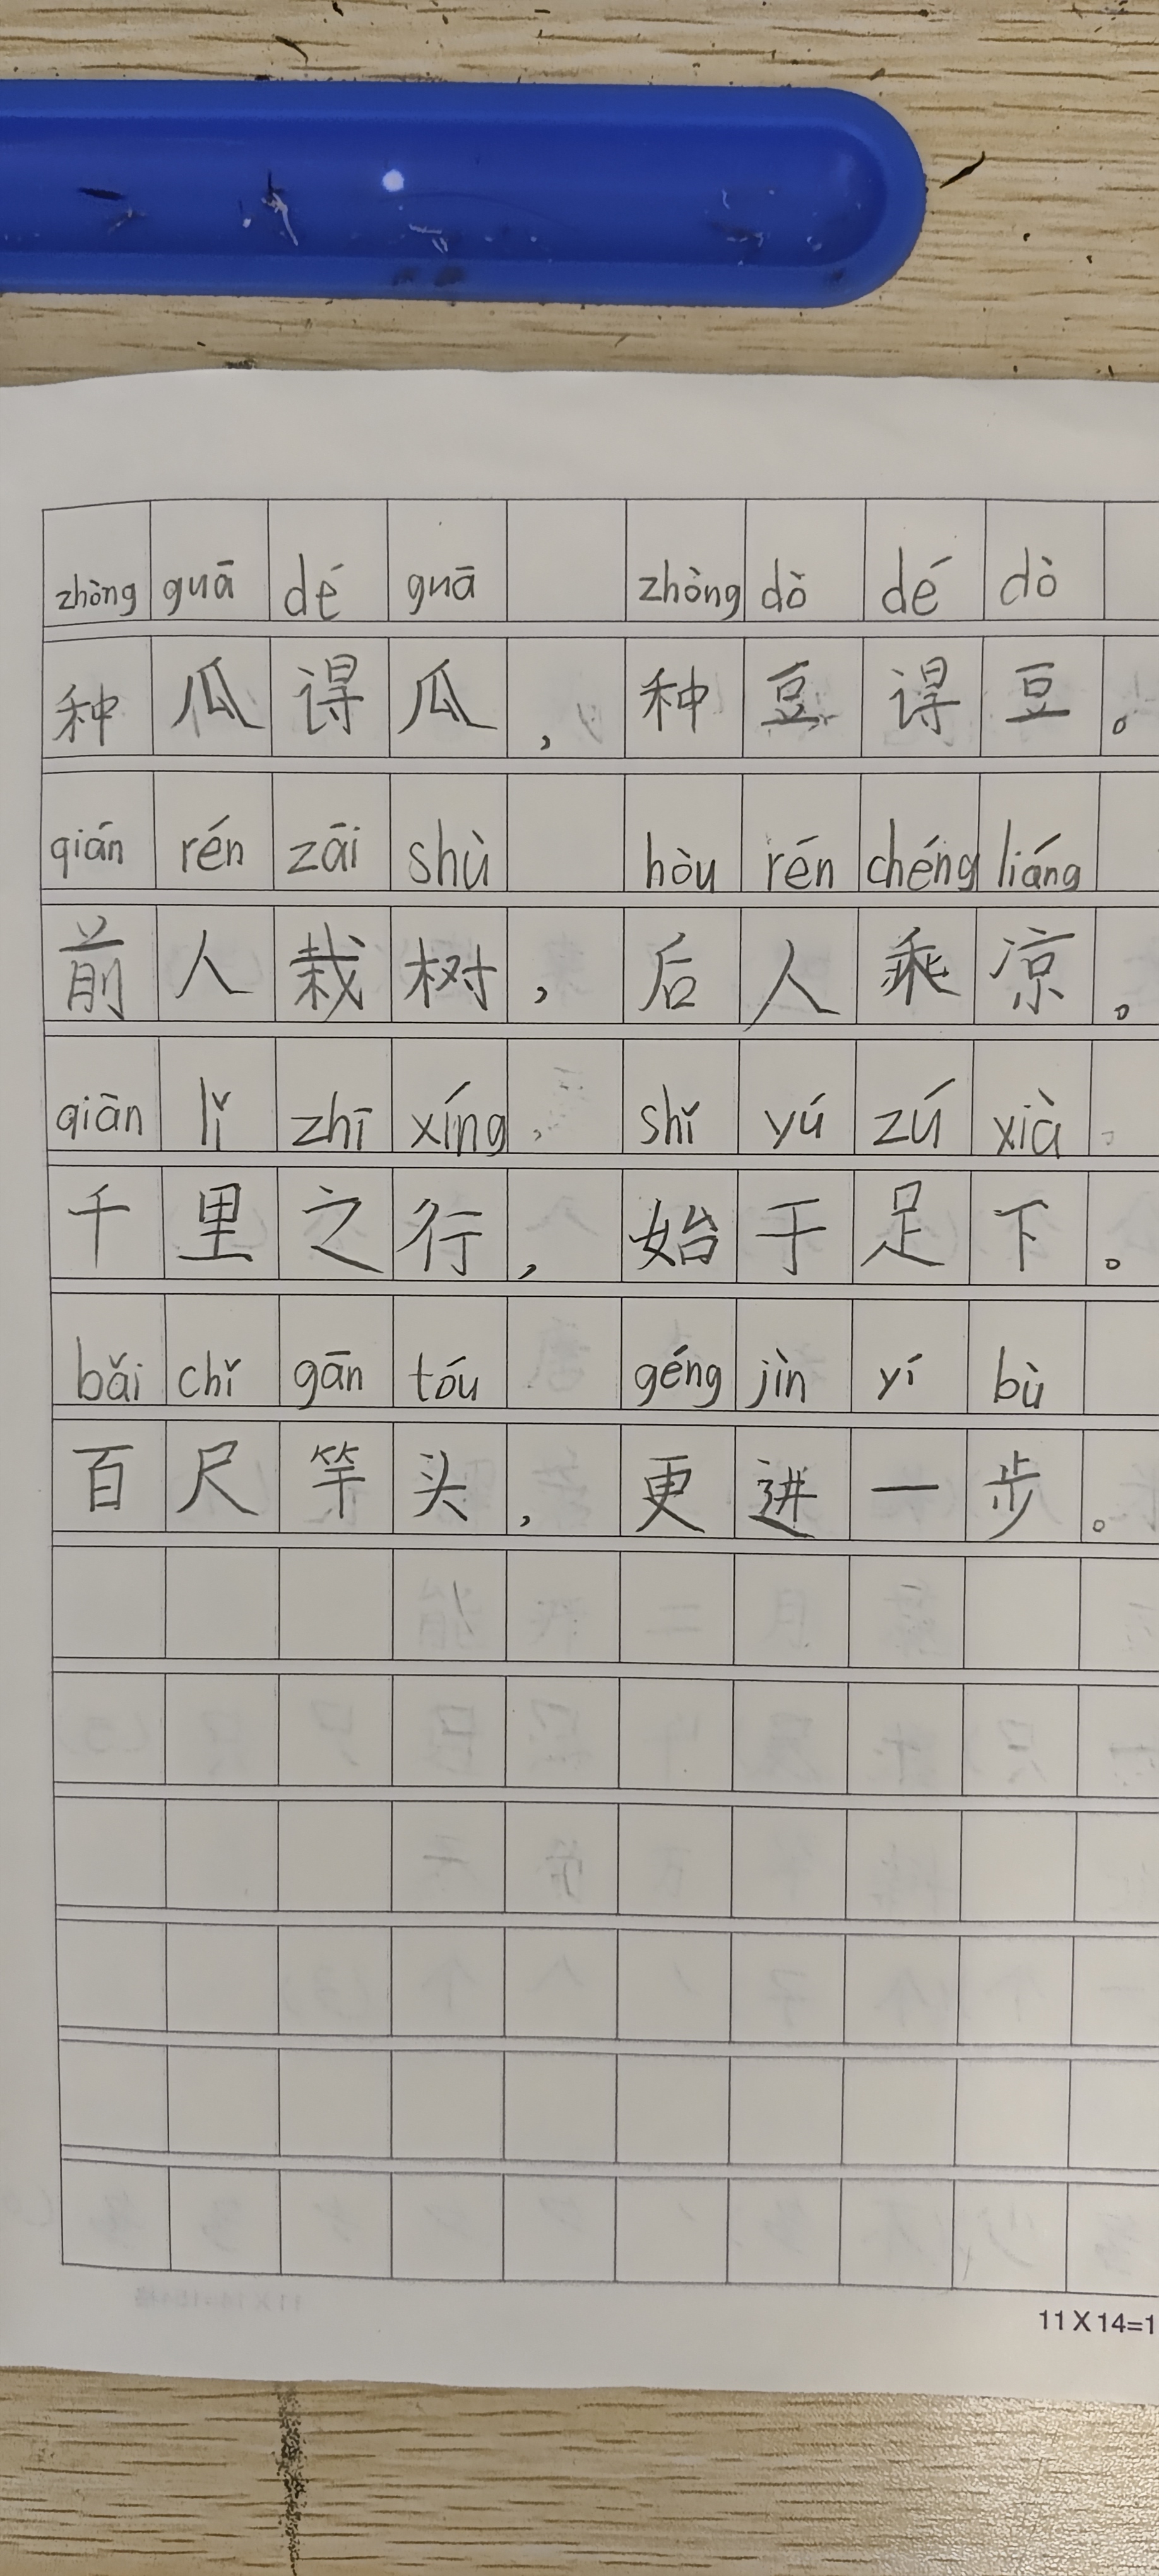 zhòng guā dé guā zhòng dò dé dò
种瓜得瓜，种豆得豆。
qián rén zāi shù hòu rén chéng liáng
前人栽树，后人乘凉。
qiān lǐ zhī xíng, shǐ yú zú xià
千里之行，始于足下。
bǎi chǐ gān tóu géng jìn yí bù
百尺竿头，更进一步。
11X14=1